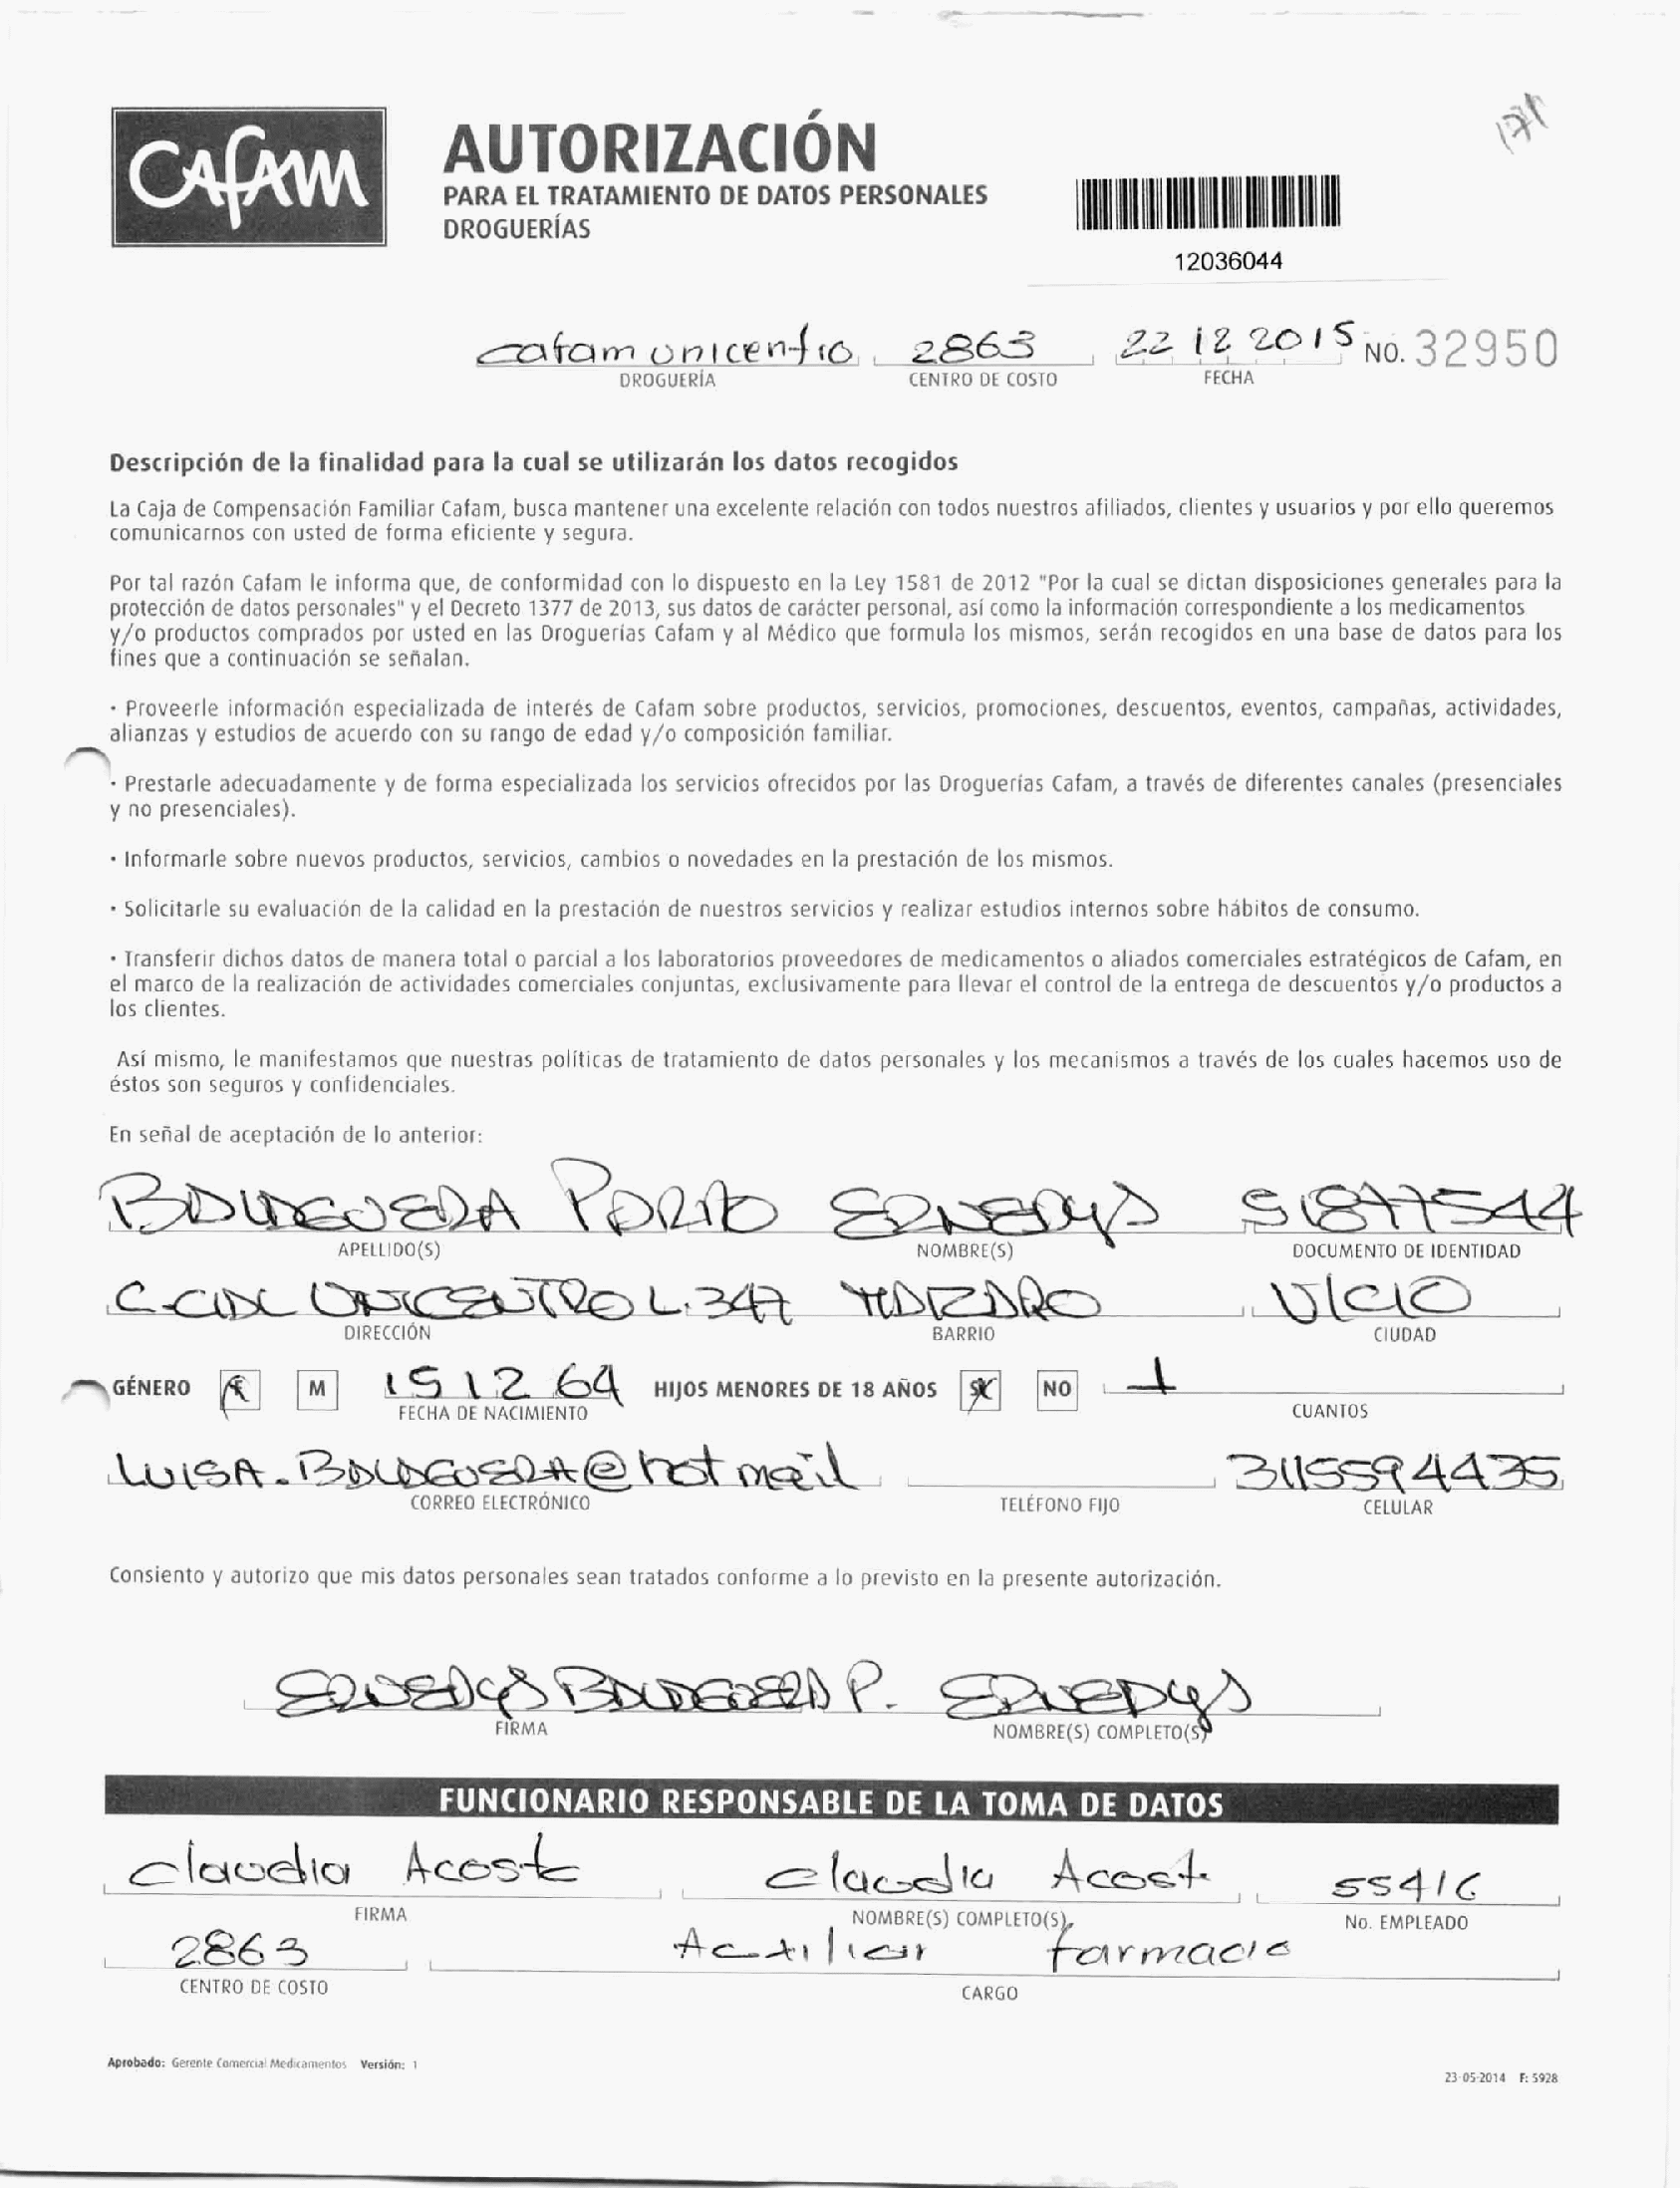 171
CAfAM
AUTORIZACIÓN
PARA EL TRATAMIENTO DE DATOS PERSONALES
DROGUERÍAS
12036044
cafam unicentro 2863 22 12 2015 NO. 32950
DROGUERÍA CENTRO DE COSTO FECHA
Descripción de la finalidad para la cual se utilizarán los datos recogidos
La Caja de Compensación Familiar Cafam, busca mantener una excelente relación con todos nuestros afiliados, clientes y usuarios y por ello queremos
comunicarnos con usted de forma eficiente y segura.
Por tal razón Cafam le informa que, de conformidad con lo dispuesto en la Ley 1581 de 2012 "Por la cual se dictan disposiciones generales para la
protección de datos personales" y el Decreto 1377 de 2013, sus datos de carácter personal, así como la información correspondiente a los medicamentos
y/o productos comprados por usted en las Droguerías Cafam y al Médico que formula los mismos, serán recogidos en una base de datos para los
fines que a continuación se señalan.
· Proveerle información especializada de interés de Cafam sobre productos, servicios, promociones, descuentos, eventos, campañas, actividades,
alianzas y estudios de acuerdo con su rango de edad y/o composición familiar.
· Prestarle adecuadamente y de forma especializada los servicios ofrecidos por las Droguerías Cafam, a través de diferentes canales (presenciales
y no presenciales).
· Informarle sobre nuevos productos, servicios, cambios o novedades en la prestación de los mismos.
· Solicitarle su evaluación de la calidad en la prestación de nuestros servicios y realizar estudios internos sobre hábitos de consumo.
· Transferir dichos datos de manera total o parcial a los laboratorios proveedores de medicamentos o aliados comerciales estratégicos de Cafam, en
el marco de la realización de actividades comerciales conjuntas, exclusivamente para llevar el control de la entrega de descuentos y/o productos a
los clientes.
Así mismo, le manifestamos que nuestras políticas de tratamiento de datos personales y los mecanismos a través de los cuales hacemos uso de
éstos son seguros y confidenciales.
En señal de aceptación de lo anterior:
BALDEGUERA PORTO ERNEDYS 51877544
APELLIDO(S) NOMBRE(S) DOCUMENTO DE IDENTIDAD
UNICENTRO L. 347 V/CIO
DIRECCIÓN BARRIO CIUDAD
GÉNERO F M 15 12 64 HIJOS MENORES DE 18 AÑOS SI NO 1
FECHA DE NACIMIENTO CUANTOS
3115594435
CORREO ELECTRÓNICO TELÉFONO FIJO CELULAR
Consiento y autorizo que mis datos personales sean tratados conforme a lo previsto en la presente autorización.
ERNEDYS P. ERNEDYS
FIRMA NOMBRE(S) COMPLETO(S)
FUNCIONARIO RESPONSABLE DE LA TOMA DE DATOS
Claudia Acosta Claudia Acosta 55416
FIRMA NOMBRE(S) COMPLETO(S) No. EMPLEADO
2863 Auxiliar farmacia
CENTRO DE COSTO CARGO
Aprobado: Gerente Comercial Medicamentos Versión: 1
23-05-2014 F: 5928